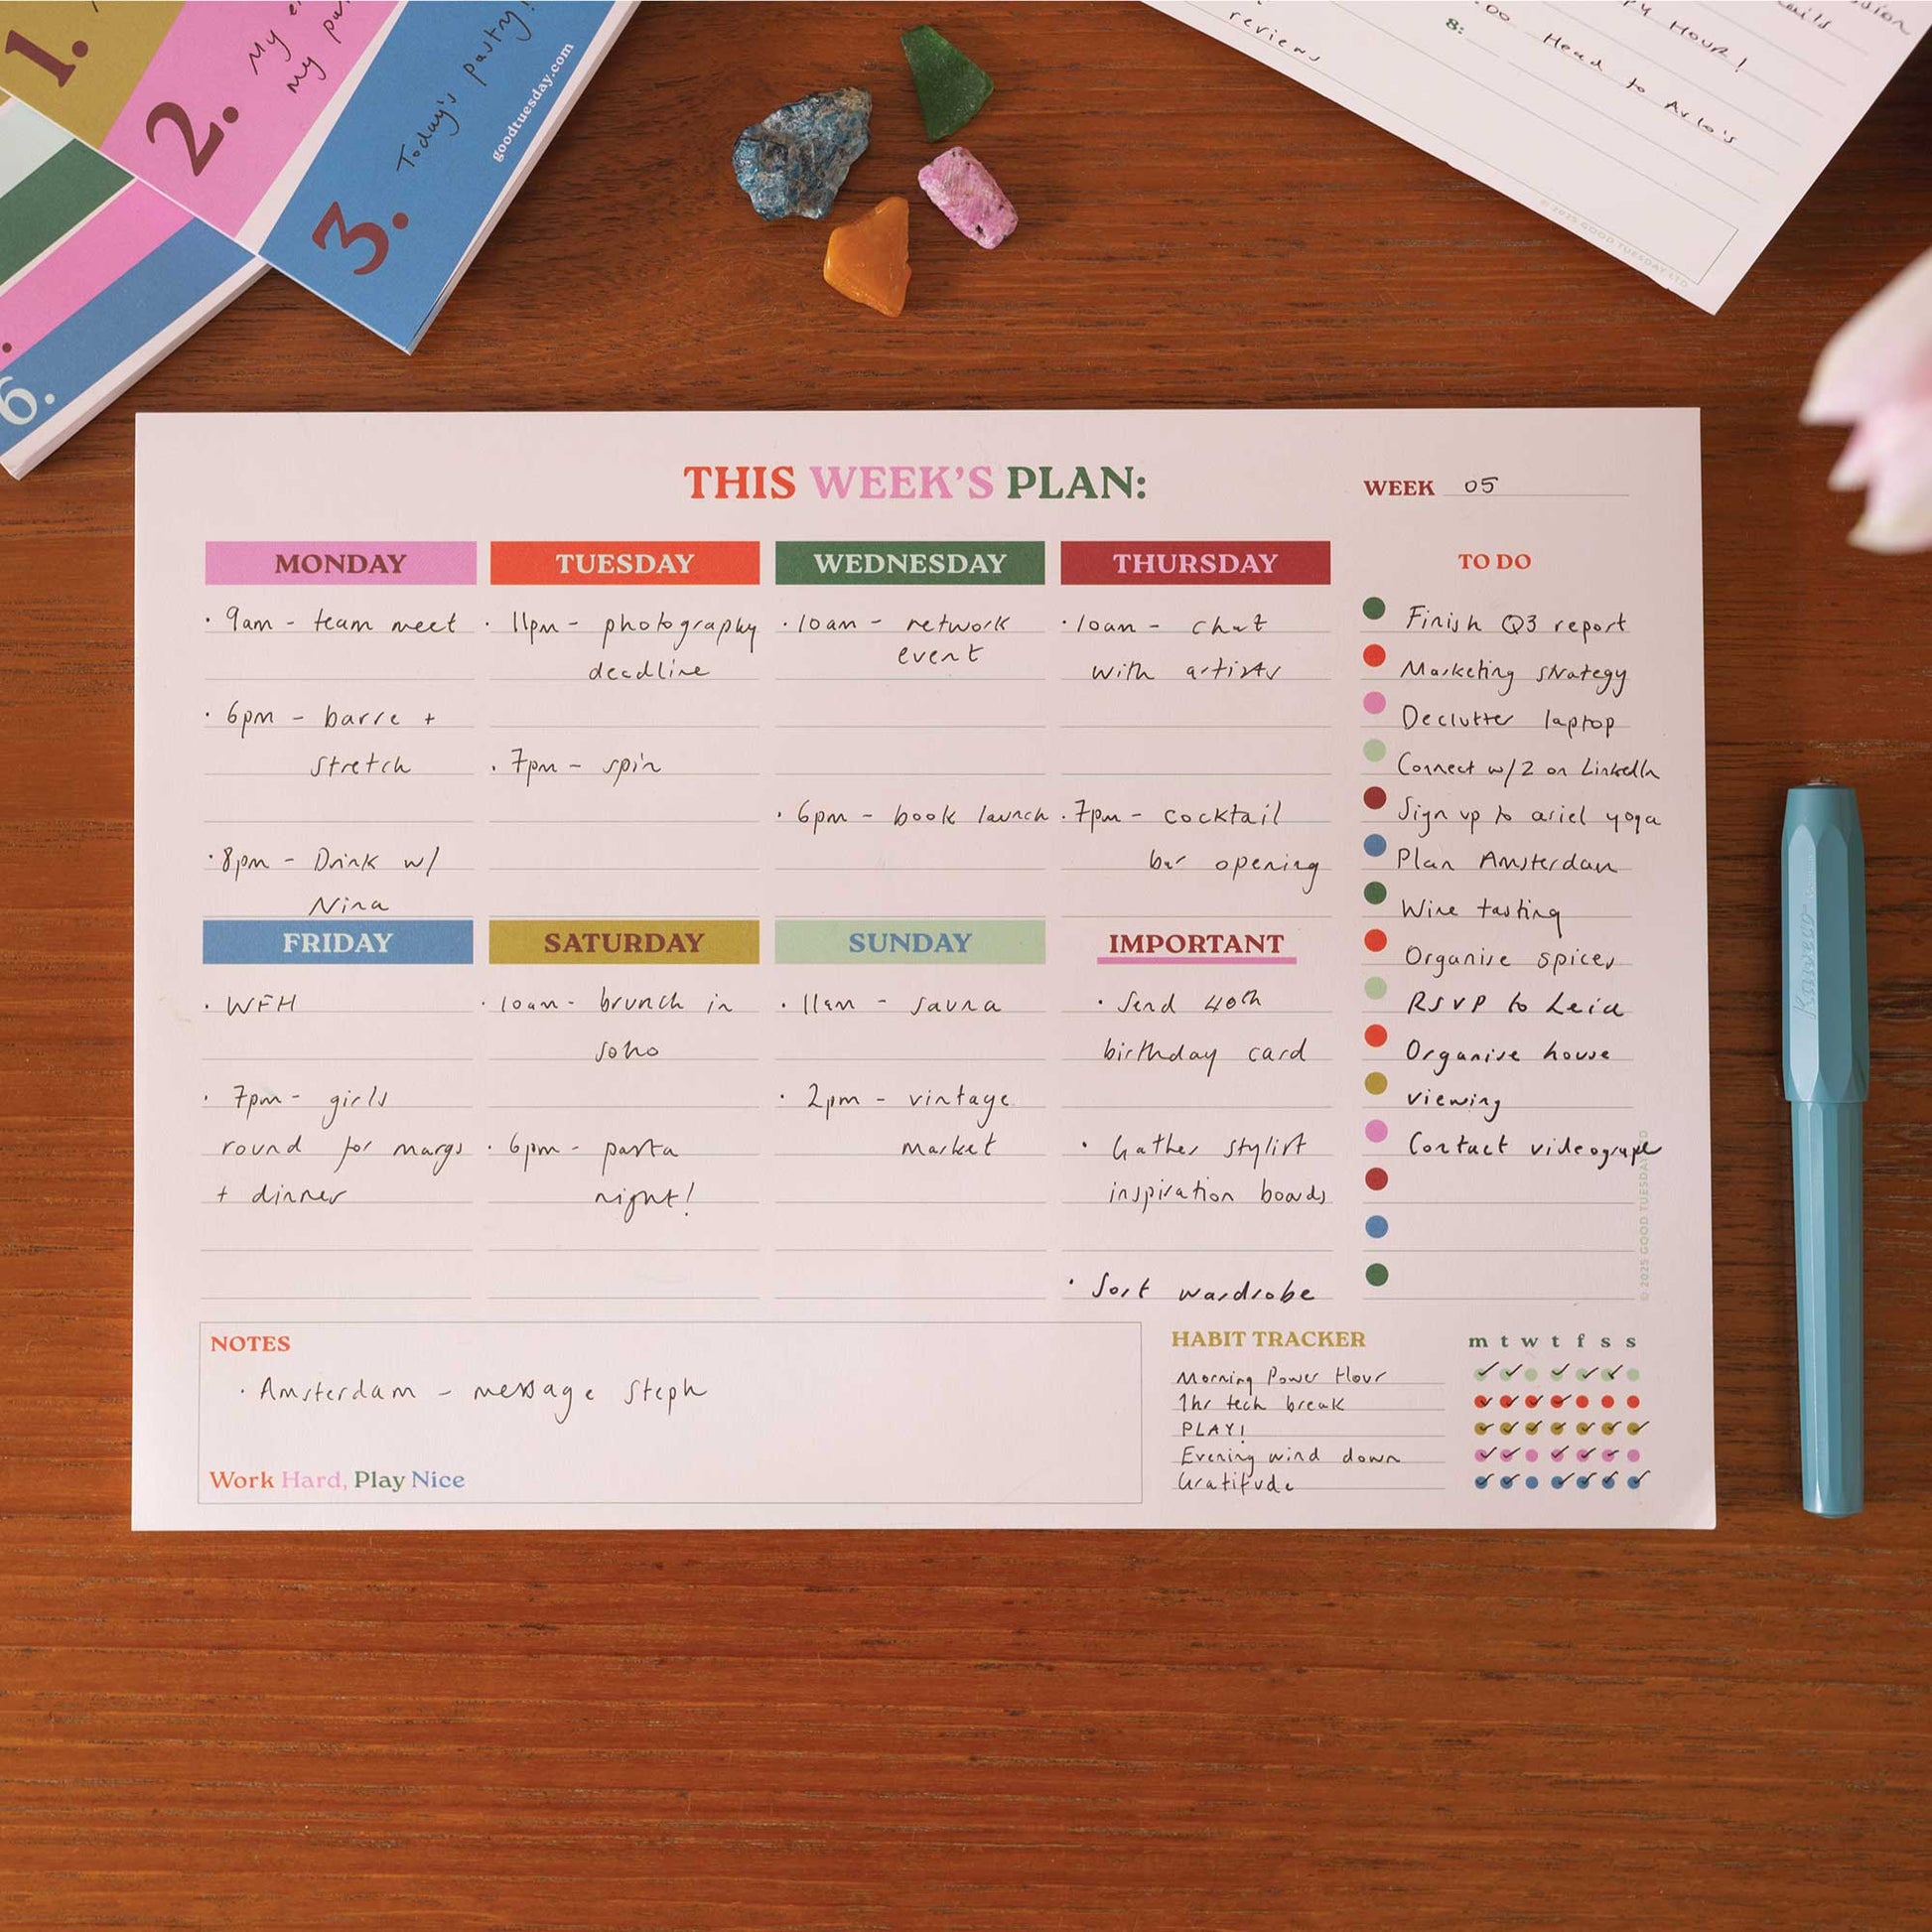 1.
2.
My
my
3.
Today's pastry!
goodtuesday.com
6.
reviews
8:
Hour!
Head to Arlo's
© 2025 GOOD TUESDAY LTD
THIS WEEK'S PLAN:
WEEK 05
MONDAY
· 9am - team meet
· 6pm - barre +
stretch
· 8pm - Drink w/
Nina
TUESDAY
· 11pm - photography
deadline
· 7pm - spin
WEDNESDAY
· 10am - network
event
· 6pm - book launch
THURSDAY
· 10am - chat
with artists
· 7pm - cocktail
bar opening
FRIDAY
· WFH
· 7pm - girls
round for margs
+ dinner
SATURDAY
· 10am - brunch in
soho
· 6pm - pasta
night!
SUNDAY
· 11am - sauna
· 2pm - vintage
market
IMPORTANT
· Send 40th
birthday card
· Gather stylist
inspiration boards
· Sort wardrobe
TO DO
Finish Q3 report
Marketing strategy
Declutter laptop
Connect w/2 on LinkedIn
Sign up to ariel yoga
Plan Amsterdam
Wine tasting
Organise spices
RSVP to Leia
Organise house
viewing
Contact videographer
© 2025 GOOD TUESDAY
NOTES
· Amsterdam - message Steph
Work Hard, Play Nice
HABIT TRACKER m t w t f s s
Morning Power Hour
1hr tech break
PLAY!
Evening wind down
Gratitude
Kaweco